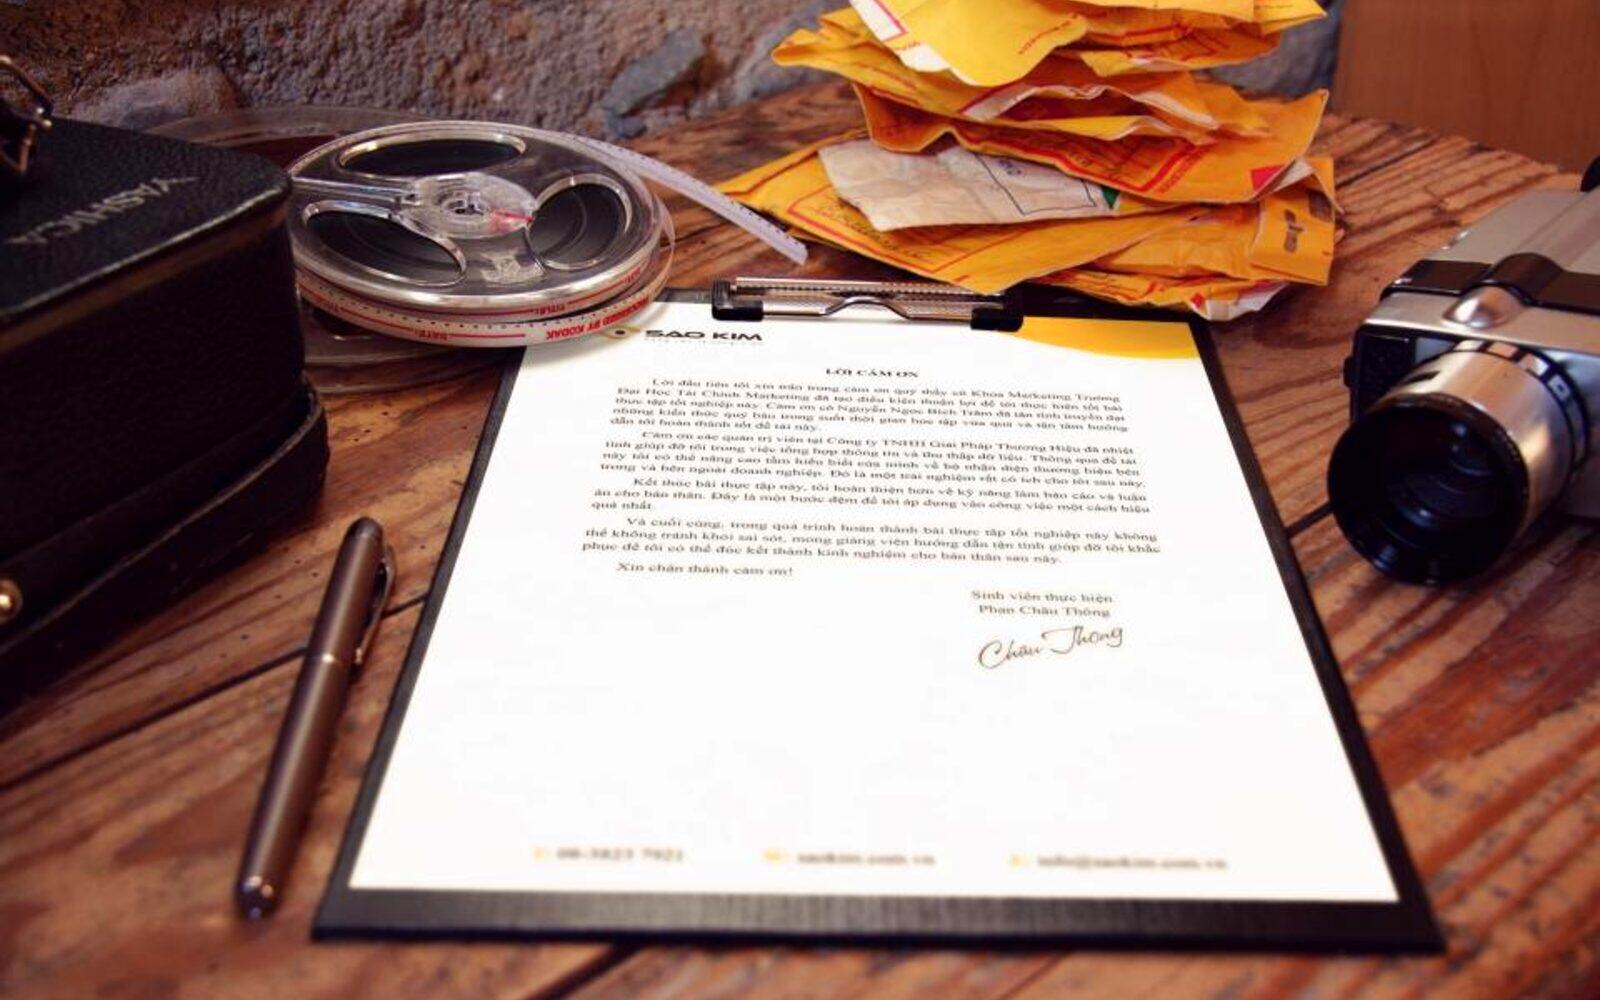 YASHICA
TITLE:
PROCESSED BY KODAK
DATE:
SAO KIM
LỜI CÁM ƠN
Lời đầu tiên tôi xin trân trọng cám ơn quý thầy cô Khoa Marketing Trường
Đại Học Tài Chính Marketing đã tạo điều kiện thuận lợi để tôi thực hiện tốt bài
thực tập tốt nghiệp này. Cám ơn cô Nguyễn Ngọc Bích Trâm đã tận tình truyền đạt
những kiến thức quý báu trong suốt thời gian học tập vừa qua và tận tâm hướng
dẫn tôi hoàn thành tốt đề tài này.
Cám ơn các quản trị viên tại Công ty TNHH Giải Pháp Thương Hiệu đã nhiệt
tình giúp đỡ tôi trong việc tổng hợp thông tin và thu thập dữ liệu. Thông qua đề tài
này tôi có thể nâng cao tầm hiểu biết của mình về bộ nhận diện thương hiệu bên
trong và bên ngoài doanh nghiệp. Đó là một trải nghiệm rất có ích cho tôi sau này.
Kết thúc bài thực tập này, tôi hoàn thiện hơn về kỹ năng làm báo cáo và luận
án cho bản thân. Đây là một bước đệm để tôi áp dụng vào công việc một cách hiệu
quả nhất.
Và cuối cùng, trong quá trình hoàn thành bài thực tập tốt nghiệp này không
thể không tránh khỏi sai sót, mong giảng viên hướng dẫn tận tình giúp đỡ tôi khắc
phục để tôi có thể đúc kết thành kinh nghiệm cho bản thân sau này.
Xin chân thành cám ơn!
Sinh viên thực hiện
Phan Châu Thông
Châu Thông
08-3823 7921
saokim.com.vn
info@saokim.com.vn